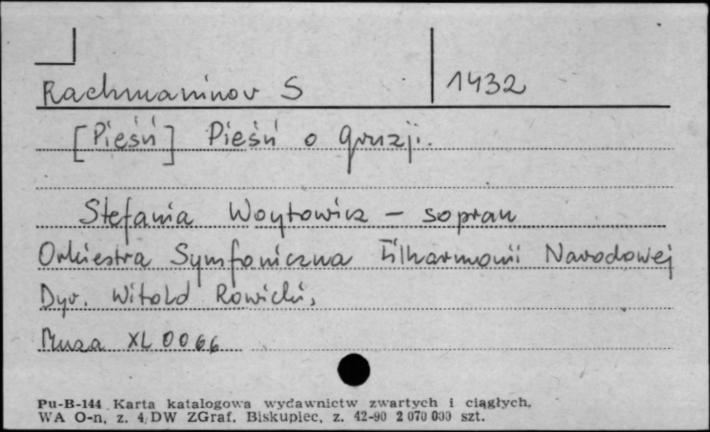 Rachmaninov S 1432
[Pieśń] Pieśń o Gruzji.
Stefania Woytowicz – sopran
Orkiestra Symfoniczna Filharmonii Narodowej
Dyr. Witold Rowicki,
Muza XL 0066
Pu-B-144 Karta katalogowa wydawnictw zwartych i ciągłych.
WA O-n, z. 4/DW ZGraf. Biskupiec, z. 42-90 2 070 000 szt.